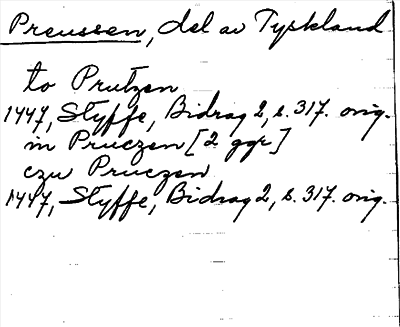 Preussen, del av Tyskland
to Prutzen
1447, Styffe, Bidrag 2, s. 317. orig.
in Pruczen [2 ggr]
czu Pruczen
1447, Styffe, Bidrag 2, s. 317. orig.